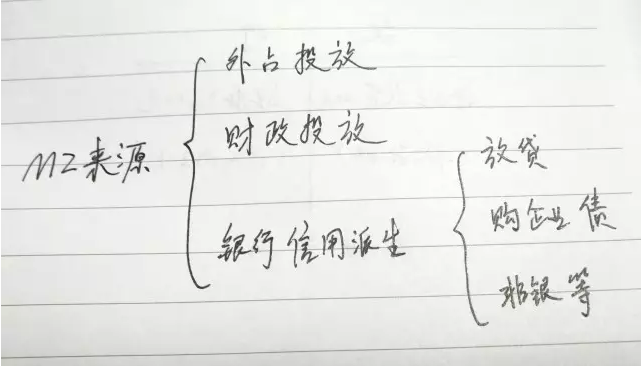 外占投放
财政投放
M2来源
放贷
购企业债
银行信用派生
非银等